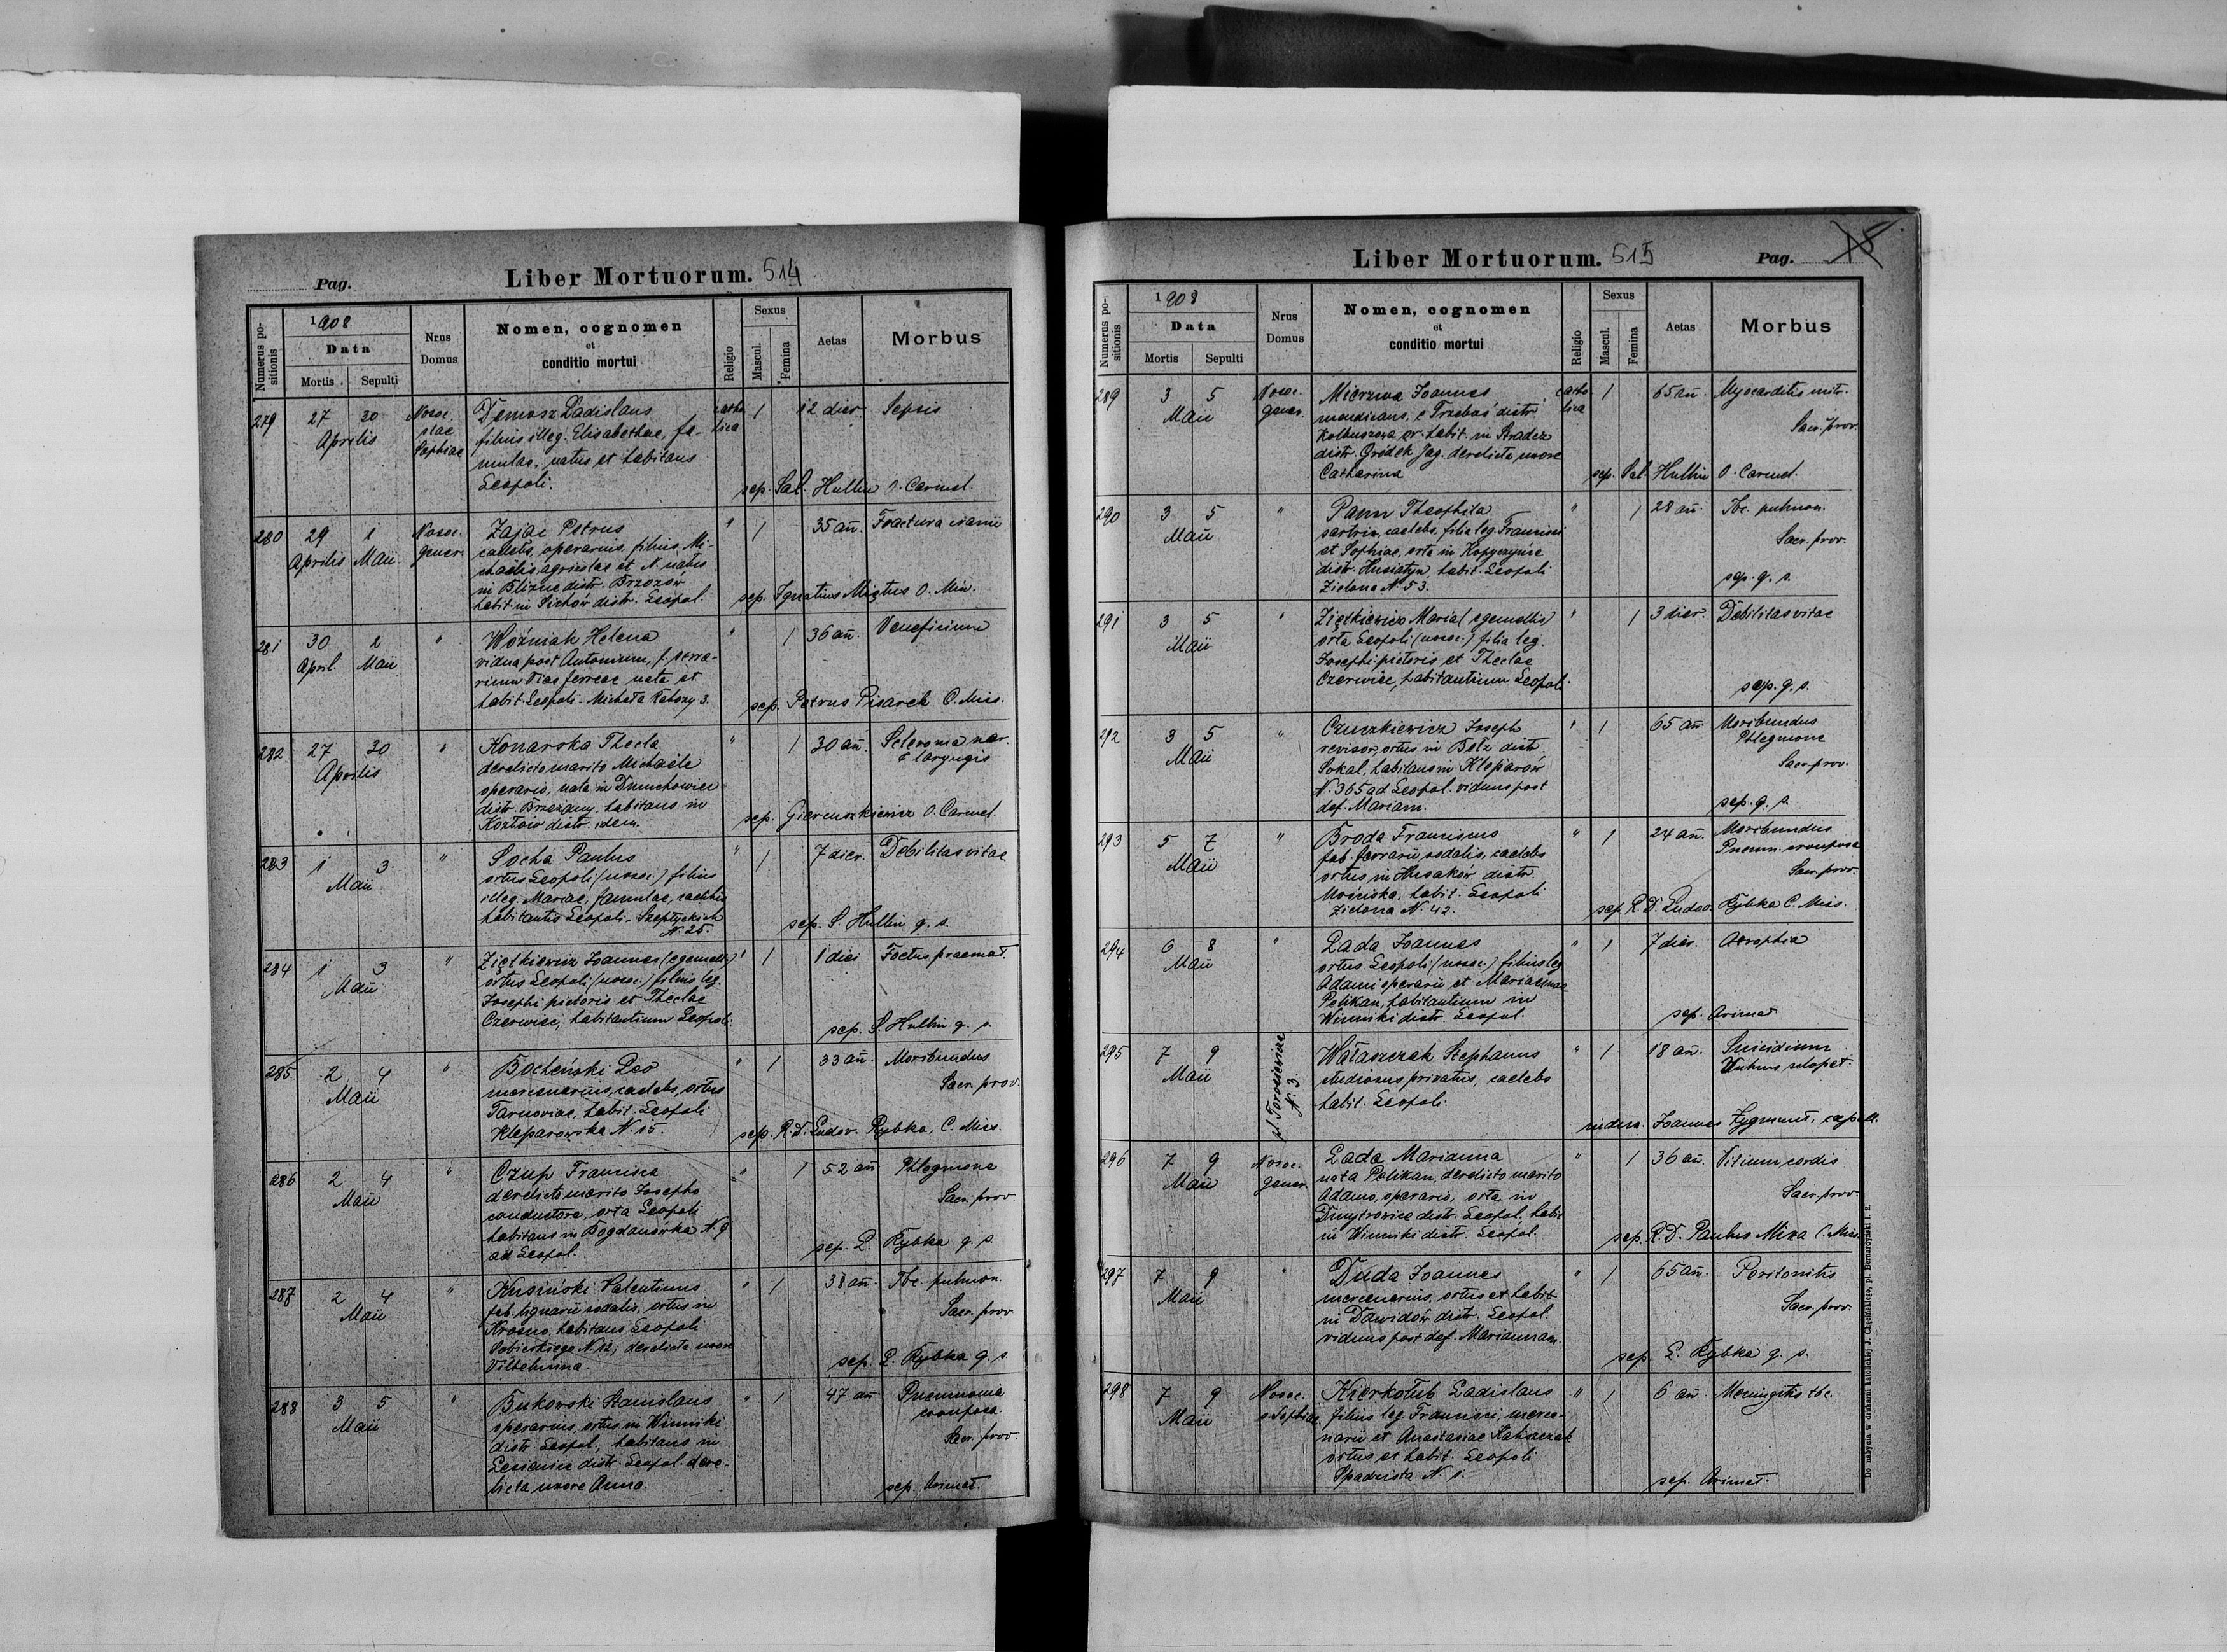 Pag.
Liber Mortuorum. 514
Numerus positionis
1908
Data
Mortis
Sepulti
Nrus Domus
Nomen, cognomen
et
conditio mortui
Religio
Sexus
Mascul.
Femina
Aetas
Morbus
279 27 30 Nosoc. Demosz Ladislaus catho 1 12 dier. Sepsis
Aprilis stae filius illeg. Elisabethae, fa- lica
Sophiae mulae, natus et habitans
Leopoli. sep. Sal. Hullin O. Carmel.
280 29 1 Nosoc. Zając Petrus " 1 35 añ. Fractura cranii
Aprilis Maii gener. caelebs, operarius, filius Mi-
chaelis agricolae et N. natus
in Blizne distr. Brzozów
habit. in Sichów distr. Leopol. sep. Ignatius Miętus O. Min.
281 30 2 " Woźniak Helena " 1 36 añ. Veneficium
April. Maii vidua post Antonium,
rium viae ferreae nata et
habit. Leopoli - Michała 3. sep. Petrus Pisarek C. Miss.
282 27 30 " Konarska Thecla " 1 30 añ. Scleroma nar.
Aprilis derelicta marito Michaële & laryngis
operario, nata in Dmuchowiec
distr. Brzeżany, habitans in
Kozłów distr. idem. sep. O. Carmel.
283 1 3 " Socha Paulus " 1 7 dier. Debilitas vitae
Maii ortus Leopoli (nosoc.) filius
illeg. Mariae, famulae, caelebis
habitantis Leopoli - Szeptyckich
N. 25. sep. S. Hullin q. s.
284 1 3 " Ziętkiewicz Joannes (e gemellis) " 1 1 diei Foetus praemat.
Maii ortus Leopoli (nosoc.) filius leg.
Josephi pictoris et Theclae
Czerwiec, habitantium Leopoli. sep. S. Hullin q. s.
285 2 4 " Bocheński Leo " 1 33 añ. Moribundus
Maii mercenarius, caelebs, ortus Sacr. prov.
Tarnoviae, habit. Leopoli
Kleparowska N. 15. sep. R. D. Ludov. Rybka, C. Miss.
286 2 4 " Czup Francisca " 1 52 añ Phlegmone
Maii derelicta marito Josepho Sacr. prov
conductore, orta Leopoli
habitans in Bogdanówka N. 9
ad Leopol. sep. L. Rybka q. s.
287 2 4 " Kusiński Valentinus " 1 38 añ. Tbc. pulmon.
Maii fab. lignarii sodalis, ortus in Sacr. prov
Krosno, habitans Leopoli
Sobieskiego N. 12, derelicta uxore
Vilhelmina. sep. L. Rybka q. s.
288 3 5 " Bukowski Stanislaus " 1 47 añ Pneumonia
Maii operarius, ortus in Winniki crouposa.
distr. Leopol., habitans in Sacr. prov.
Lesienice distr. Leopol. dere-
licta uxore Anna. sep. Arimat.
Liber Mortuorum. 515
Pag.
Numerus positionis
1908
Data
Mortis
Sepulti
Nrus Domus
Nomen, cognomen
et
conditio mortui
Religio
Sexus
Mascul.
Femina
Aetas
Morbus
289 3 5 Nosoc. Mierzwa Joannes catho 1 65 añ. Myocarditis
Maii gener. mendicans, e Trzeboś distr. lica Sacr. prov.
Kolbuszowa or. habit. in Bradcz
distr. Gródek Jag. derelicta uxore
Catharina sep. Sal. Hullin O. Carmel.
290 3 5 " Pann Theophila " 1 28 añ. Tbc. pulmon.
Maii sartrix, caelebs, filia leg. Francisci Sacr. prov.
et Sophiae, orta in Kopyczyńce
distr. Husiatyn, habit. Leopoli
Zielona N. 53. sep. q. s.
291 3 5 " Ziętkiewicz Maria (e gemellis) " 1 3 dier. Debilitas vitae
Maii orta Leopoli (nosoc.) filia leg.
Josephi pictoris et Theclae
Czerwiec, habitantium Leopoli. sep. q. s.
292 3 5 " Czuszkiewicz Joseph " 1 65 añ Moribundus
Maii revisor, ortus in Bełz distr. Phlegmone
Sokal, habitans in Kleparów Sacr. prov.
N. 365 ad Leopol. viduus post
def. Mariam. sep. q. s.
293 5 7 " Broda Franciscus " 1 24 añ. Moribundus
Maii fab. ferrarii sodalis, caelebs Pneum. crouposa
ortus in Husaków distr. Sacr. prov.
Mościska, habit. Leopoli
Zielona N. 42. sep. R. D. Ludov. Rybka C. Miss.
294 6 8 " Lada Joannes " 1 7 dier. Atrophia
Maii ortus Leopoli (nosoc.) filius leg
Adami operarii et Mariannae
Pelikan, habitantium in
Winniki distr. Leopol. sep. Arimat.
295 7 9 pl. N. 3. Wałaszczak Stephanus " 1 18 añ. Suicidium
Maii studiosus privatus, caelebs Vulnus sclopet.
habit. Leopoli. Joannes Zygmunt, capell.
296 7 9 Nosoc. Lada Marianna " 1 36 añ. Vitium cordis
Maii gener. nata Pelikan, derelicto marito Sacr. prov
Adamo, operario, orta in
Dmytrowice distr. Leopol. habit
in Winniki distr. Leopol. sep. R. D. Paulus Miza C. Miss.
297 7 9 " Duda Joannes " 1 65 añ. Peritonitis
Maii mercenarius, ortus et habit Sacr. prov.
in Dawidów distr. Leopol.
viduus post def. Mariannam. sep. L. Rybka q. s.
298 7 9 Nosoc. Kierkołub Ladislaus " 1 6 añ. Meningitis tbc.
Maii s. Sophiae. filius leg. Francisci, merce-
narii et Anastasiae
ortus et habit. Leopoli
Spadzista N. 1. sep. Arimat.
Do nabycia w drukarni katolickiej J. Chęcińskiego, pl. Bernardyński l. 2.